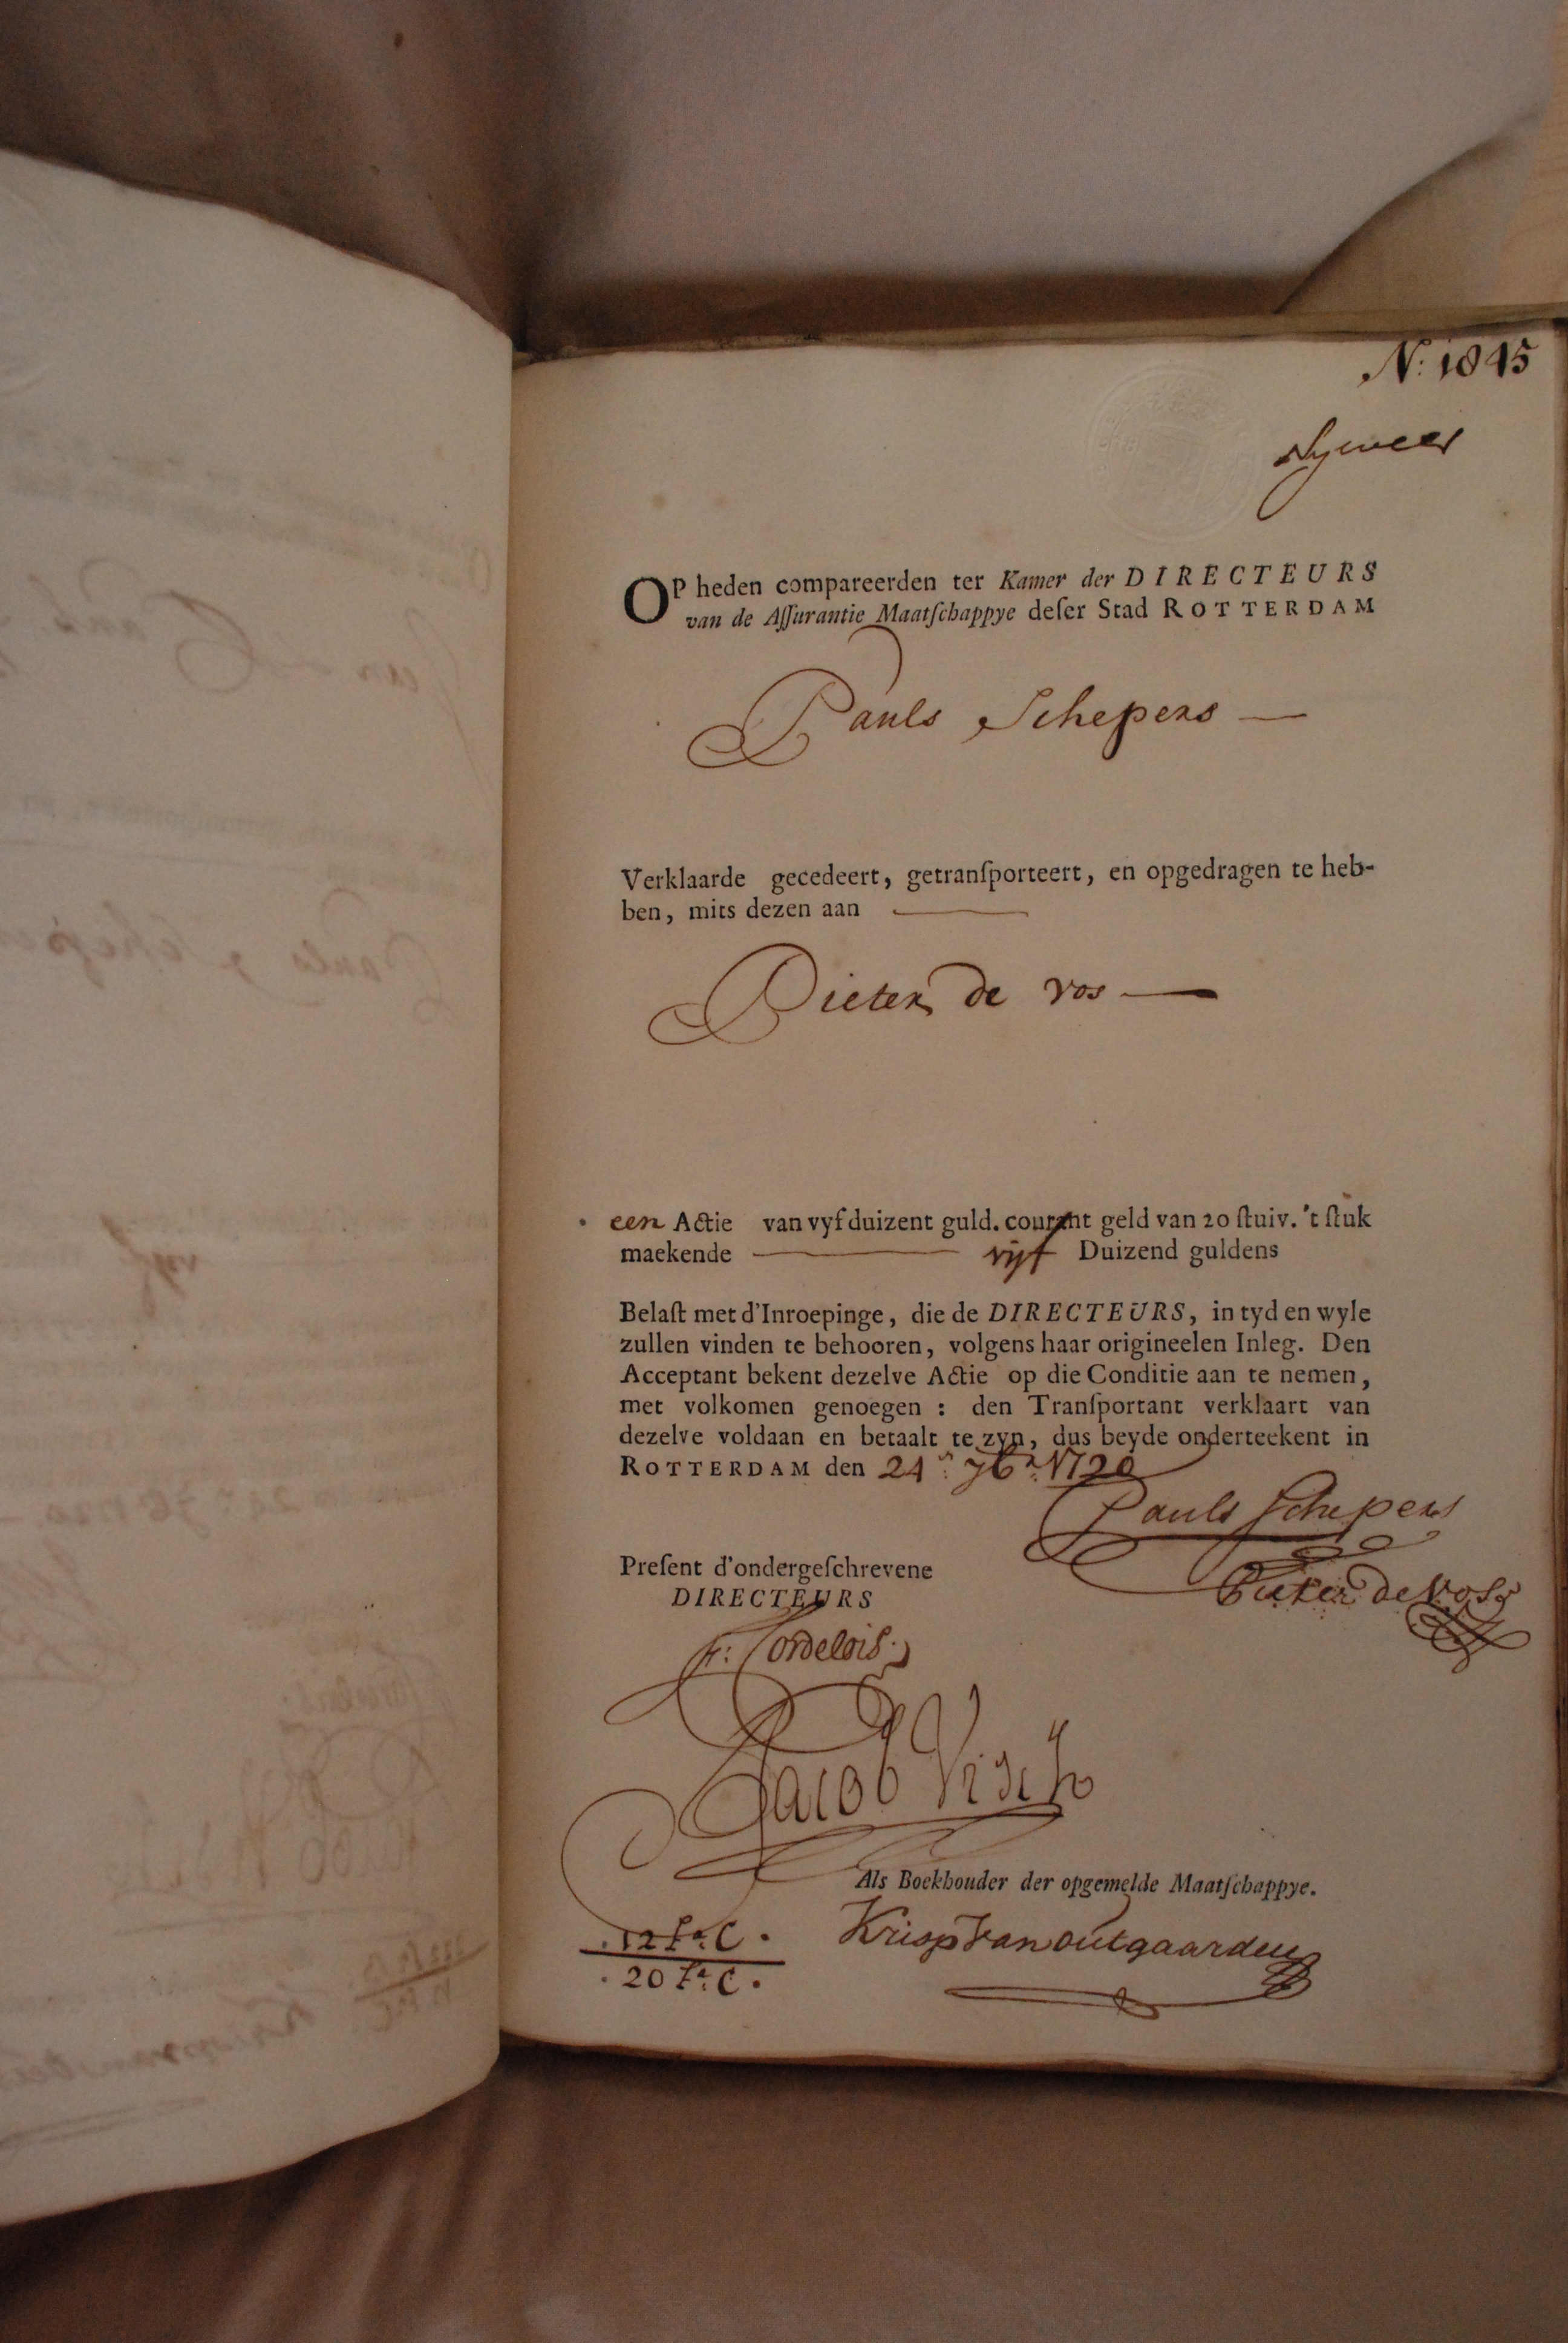 N: 1845
OP heden compareerden ter Kamer der DIRECTEURS
van de Aſſurantie Maatſchappye deſer Stad ROTTERDAM
Pauls Schepers —
Verklaarde gecedeert, getranſporteert, en opgedragen te heb-
ben, mits dezen aan —
Pieter de vos —
een Actie van vyf duizent guld. courant geld van 20 ſtuiv. 't ſtuk
maekende — vijf Duizend guldens
Belaſt met d'Inroepinge, die de DIRECTEURS, in tyd en wyle
zullen vinden te behooren, volgens haar origineelen Inleg. Den
Acceptant bekent dezelve Actie op die Conditie aan te nemen,
met volkomen genoegen : den Tranſportant verklaart van
dezelve voldaan en betaalt te zyn, dus beyde onderteekent in
ROTTERDAM den 24:n 7br: 1720
Pauls Schepers
Pieter de Voſſ
Preſent d'ondergeſchrevene
DIRECTEURS
Jacob Viſch
Als Boekhouder der opgemelde Maatſchappye.
Krisp van outgaarden
12 Pr: C.
20 Pr: C.